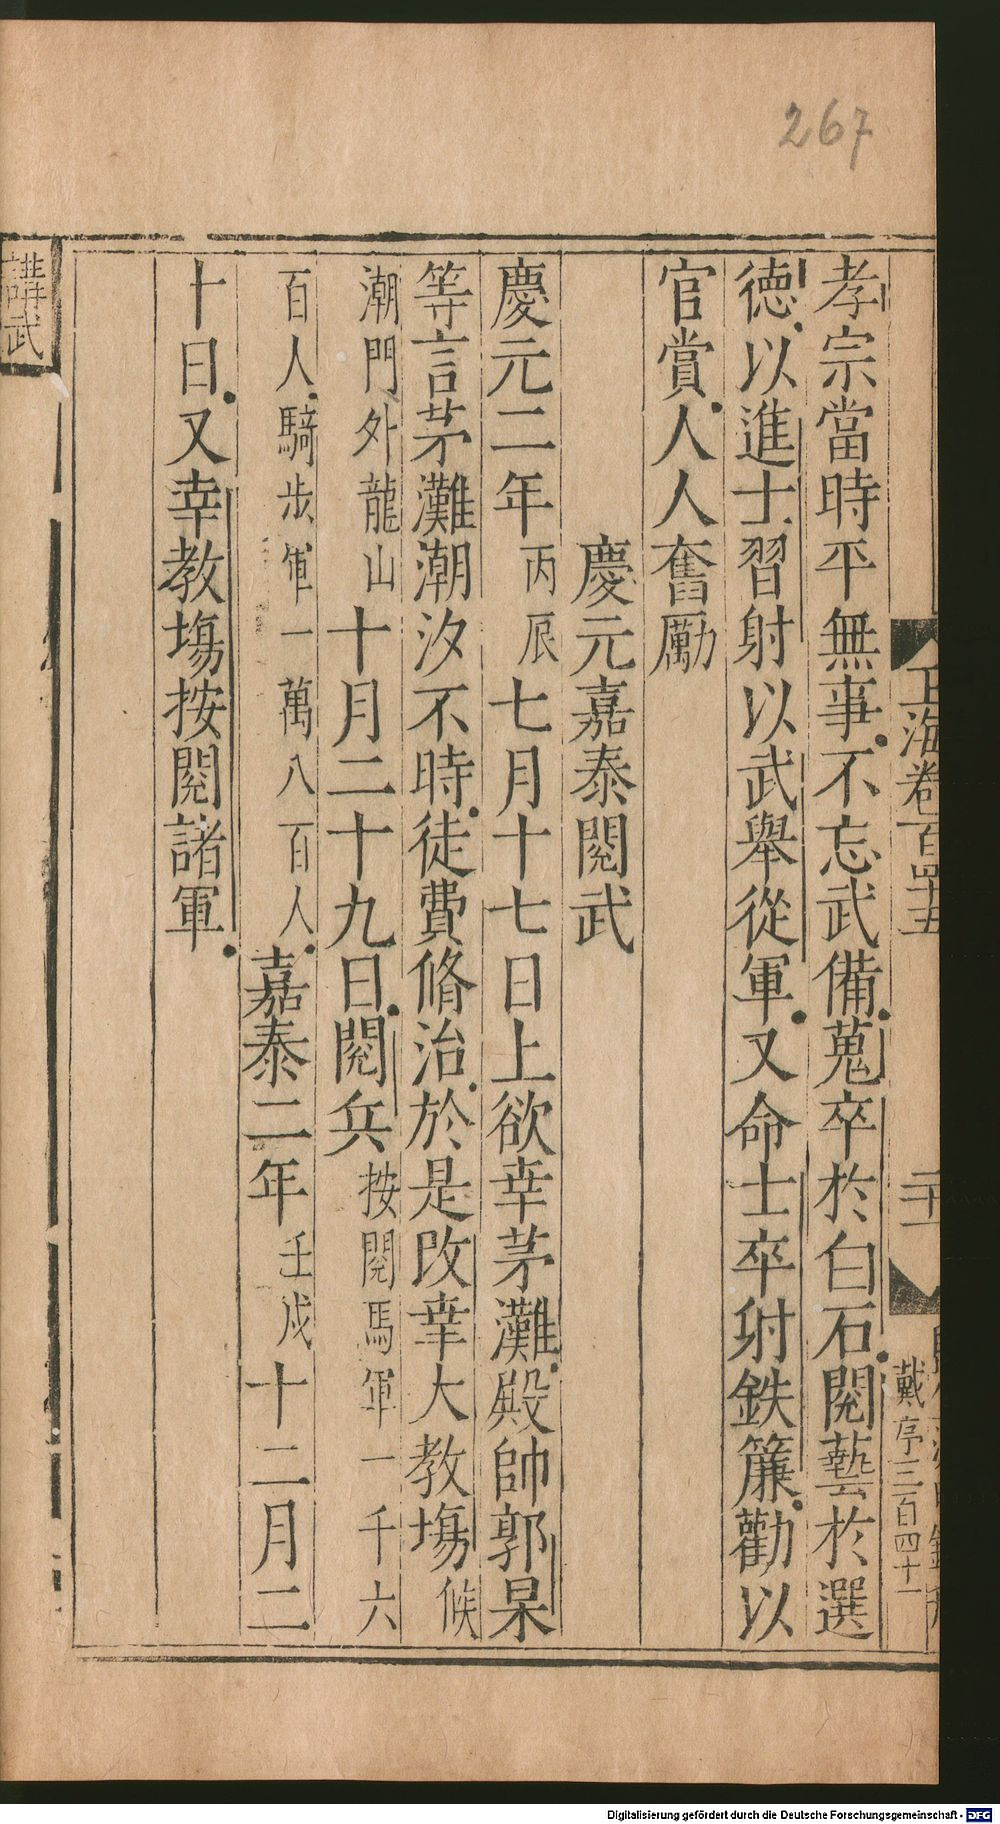 267
玉海卷一百四十五
二十一
戴序三百四十一
孝宗當時平無事不忘武備蒐卒於白石閱藝於選
德以進士習射以武舉從軍又命士卒射鉄簾勸以
官賞人人奮勵
慶元嘉泰閱武
慶元二年丙辰七月十七日上欲幸茅灘殿帥郭杲
等言茅灘潮汐不時徒費脩治於是改幸大教場候
潮門外龍山十月二十九日閱兵按閱馬軍一千六
百人騎步軍一萬八百人嘉泰二年壬戌十二月二
十日又幸教場按閱諸軍
講武
Digitalisierung gefördert durch die Deutsche Forschungsgemeinschaft - DFG